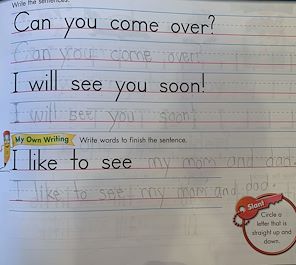 Write the sentences.
Can you come over?
Can you come over?
I will see you soon!
I will see you soon!
My Own Writing Write words to finish the sentence.
I like to see my mom and dad.
I like to see my mom and dad.
Slant
Circle a
letter that is
straight up and
down.